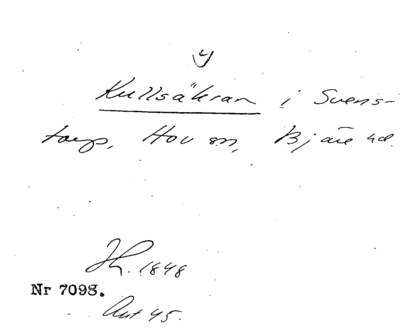 y
Kullsåkran i Svens-
torp, Hov sn, Bjäre hd.
Jh. 1848
Nr 7098.
Ant 45.